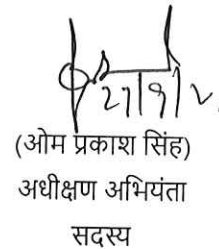 27/9/2
(ओम प्रकाश सिंह)
अधीक्षण अभियंता
सदस्य